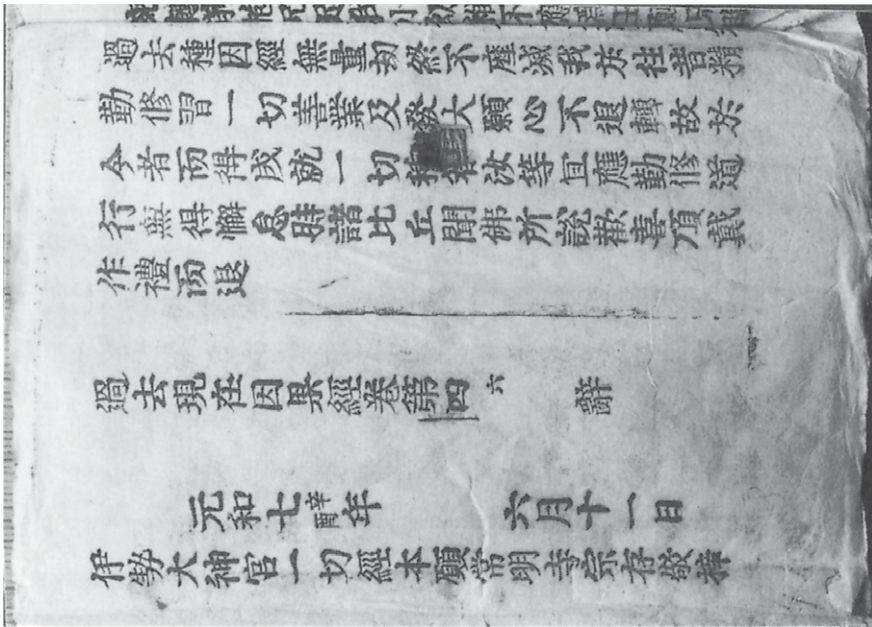 過去種因經無量劫終不磨滅我於往昔精
勤修習一切善業及發大願心不退轉故於
今者而得成就一切種智汝等宜應勤修道
行無得懈怠時諸比丘聞佛所說歡喜頂戴
作禮而退
過去現在因果經卷第四 六 辭
元和七辛酉年 六月十一日
伊勢大神宮一切經本願常明寺宗存敬梓